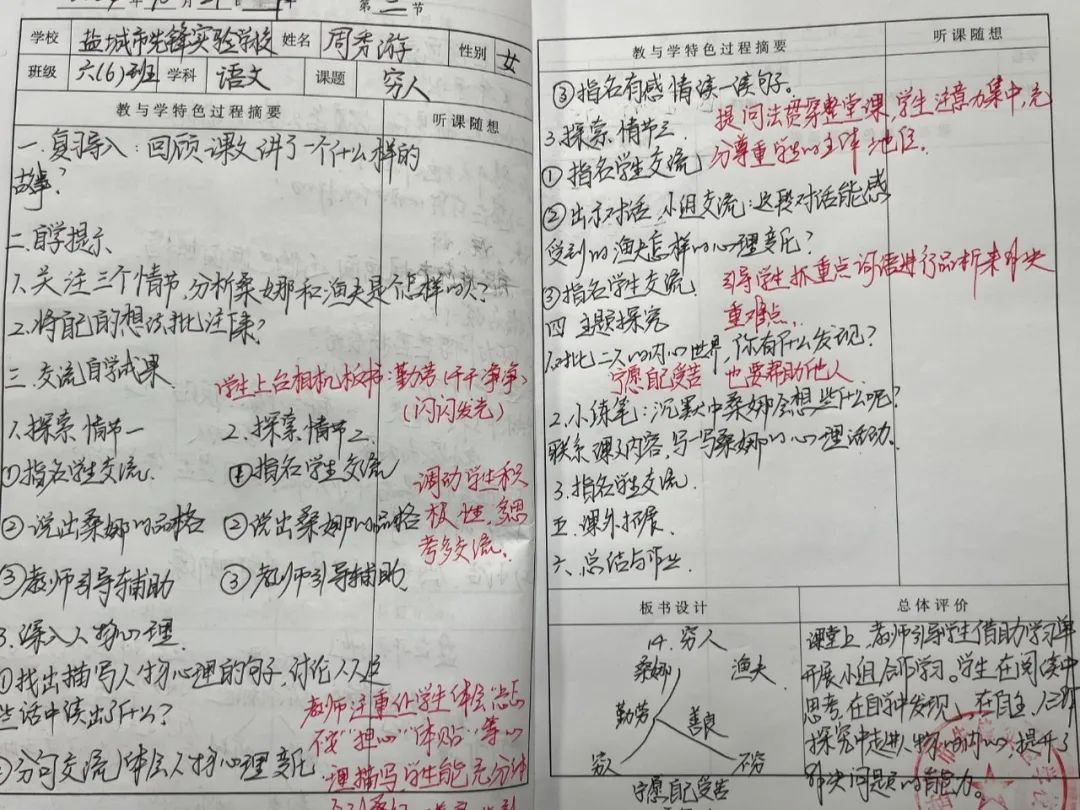 年10月 第 节
学校 盐城市先锋实验学校 姓名 周秀游 性别 女
班级 六(6)班 学科 语文 课题 穷人
教与学特色过程摘要 听课随想
一.复习导入:回顾课文讲了一个什么样的
故事?
二.自学提示
1.关注三个情节,分析桑娜和渔夫是个怎样的人?
2.将自己的想法批注下来?
三.交流自学成果
学生上台相机板书:勤劳(干干净净)
(闪闪发光)
1.探索情节一 2.探索情节二
①指名学生交流. ①指名学生交流
②说出桑娜的品格 ②说出桑娜的品格
③教师引导辅助 ③教师引导辅助
调动学生积
极性,多思
考多交流.
3.深入人物心理.
①找出描写人物心理的句子,讨论从这
些话中读出了什么?
②分句交流体会人物心理变化
教师注重让学生体会"忐忑
不安""担心""体贴"等心
理描写学生能充分
教与学特色过程摘要 听课随想
③指名有感情读一读句子。
提问法贯穿整堂课,学生注意力集中,充
分尊重学生的主体地位.
3.探索情节三
①指名学生交流
②出示对话,小组交流:这段对话能感
受到的渔夫怎样的心理变化?
③指名学生交流.
引导学生抓重点词语进行品析来解决
重难点.
四 主题探究
1.对比二人的内心世界,你有什么发现?
宁愿自己受苦 也要帮助他人
2.小练笔:沉默中桑娜会想些什么呢?
联系课文内容,写一写桑娜的心理活动.
3.指名学生交流.
五.课外拓展.
六.总结与作业.
板书设计 总体评价
14.穷人
桑娜 渔夫
勤劳 善良
穷人 不穷
宁愿自己受苦
课堂上,教师引导学生借助学习单
开展小组合作学习。学生在阅读中
思考,在自学中发现,在自主、合作
探究中走进人物的内心,提升了
解决问题的能力。